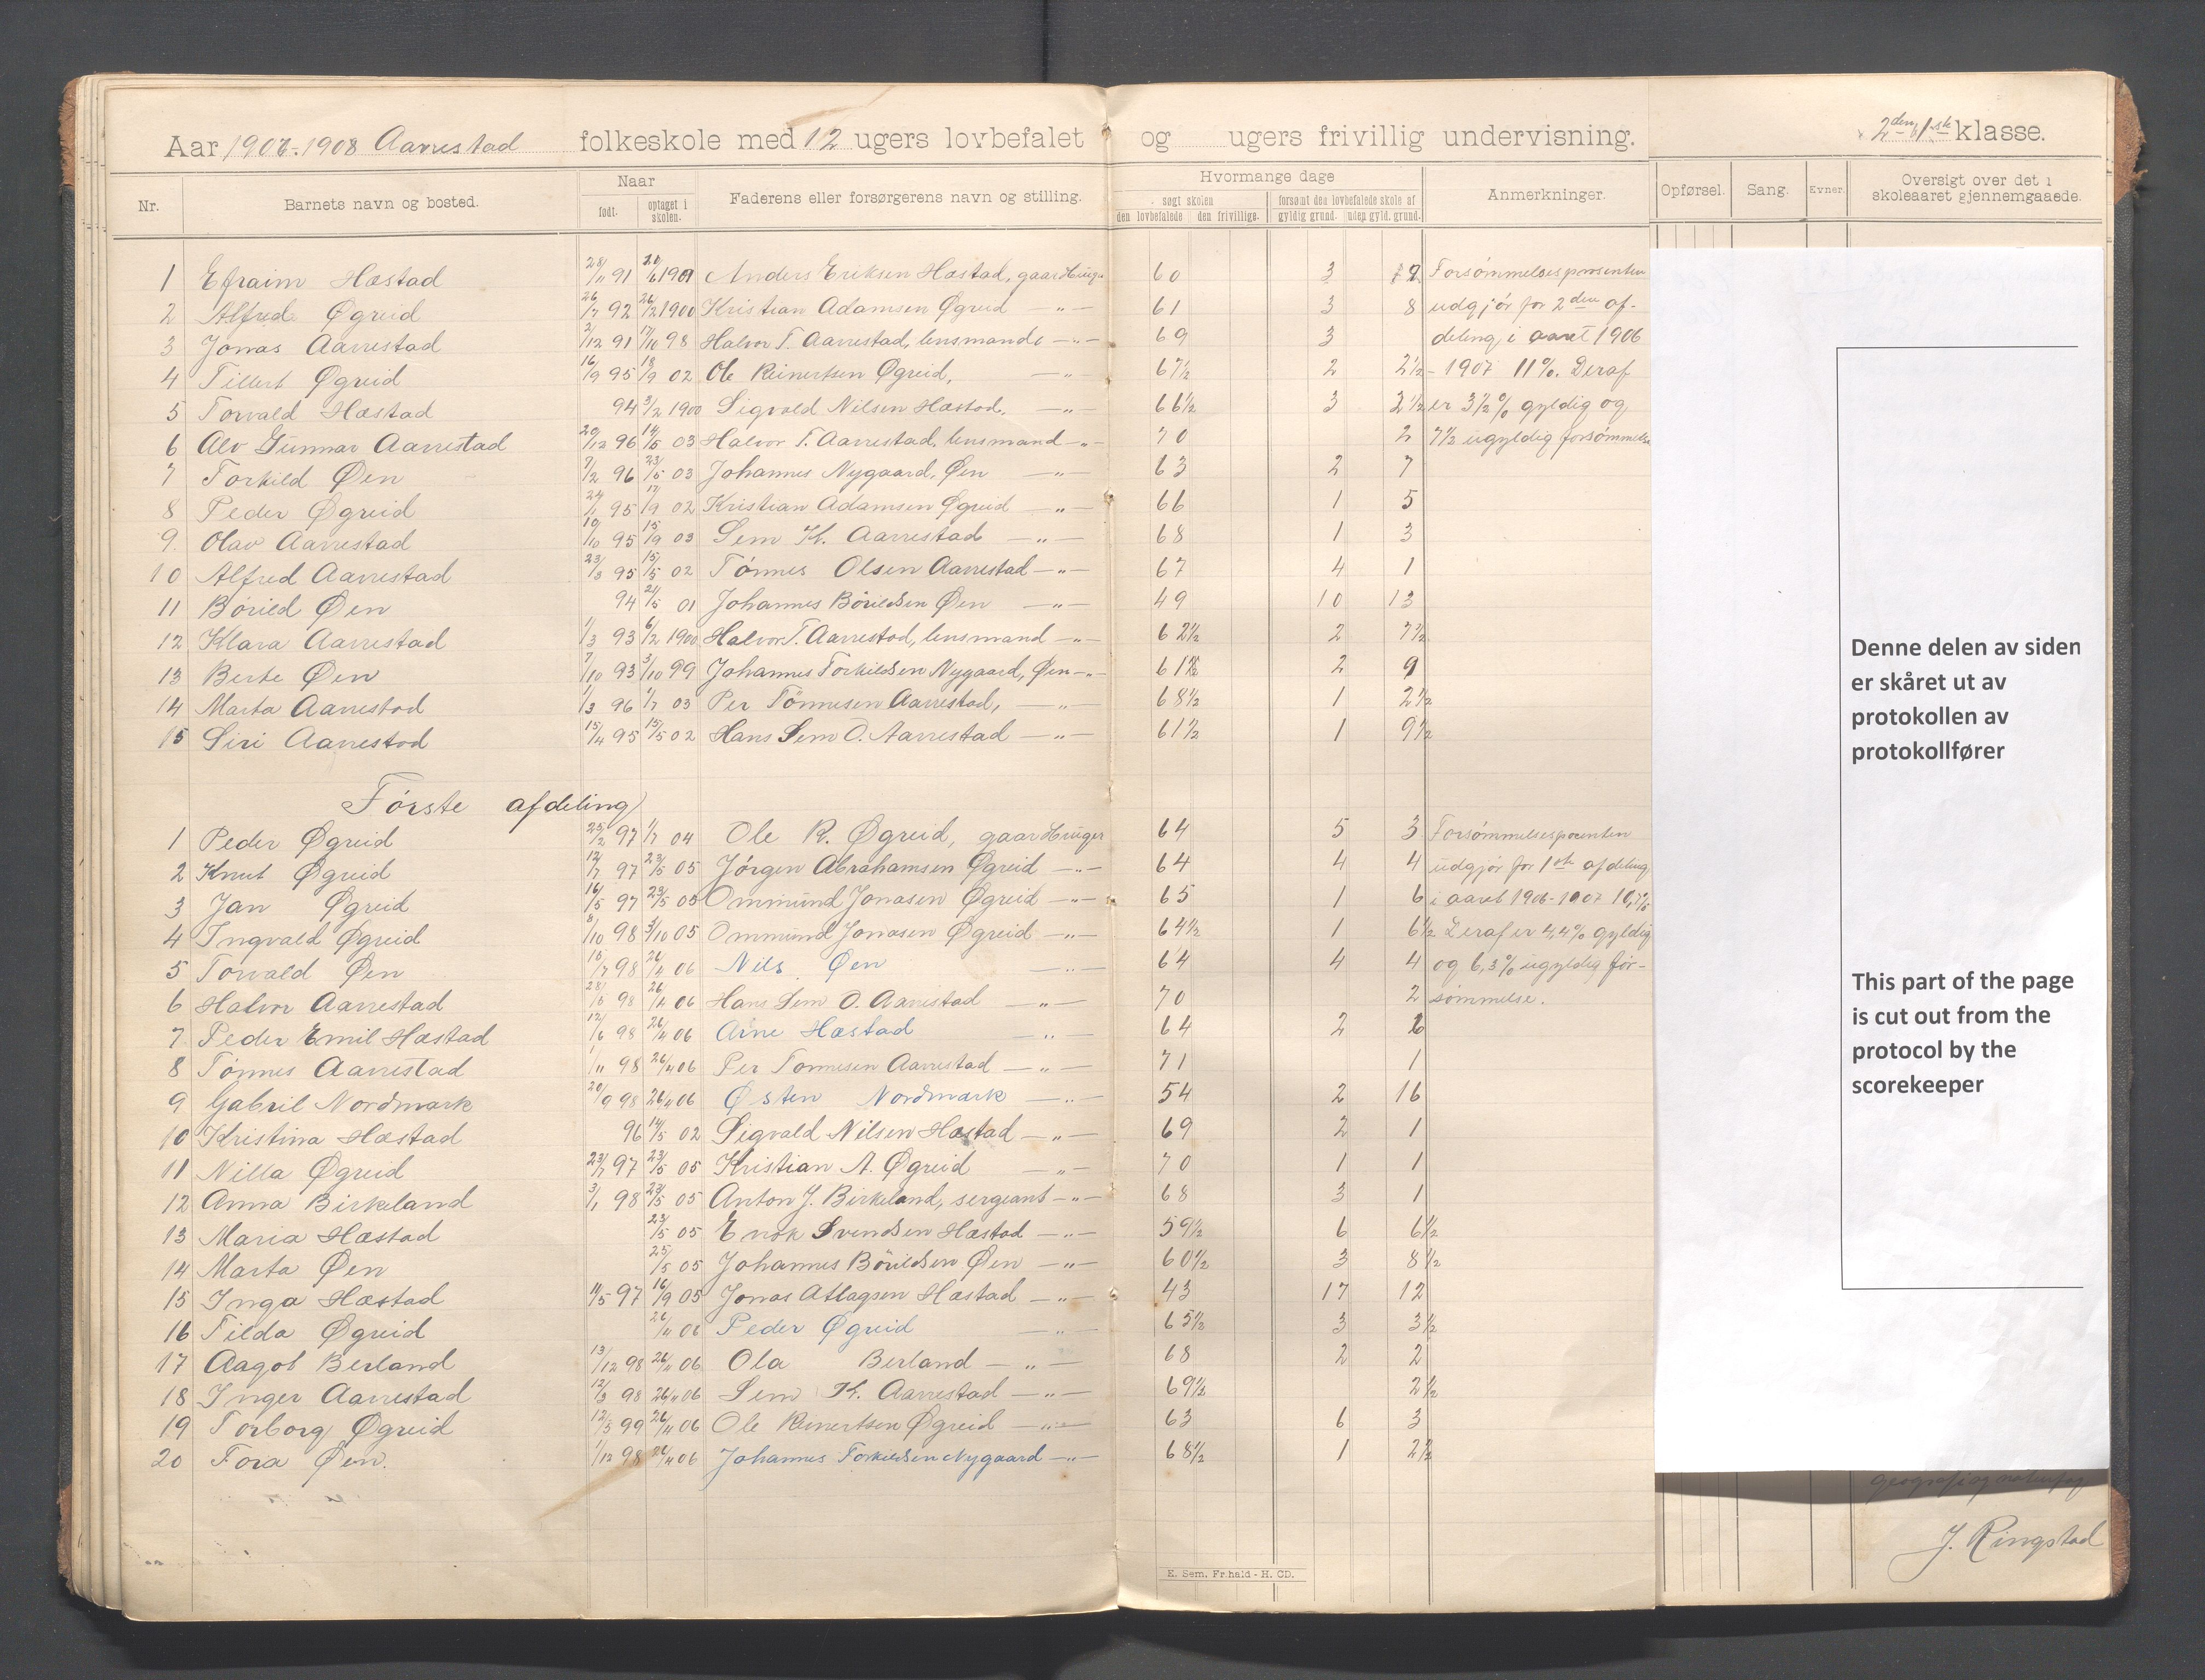 Aar 1907-1908 Aarrestad folkeskole med 12 ugers lovbefalet og ugers frivillig undervisning. 2den, 1ste klasse.
Nr. Barnets navn og bosted. Naar født. optaget i skolen. Faderens eller forsørgerens navn og stilling. Hvormange dage søgt skolen den lovbefalede den frivillige. forsømt den lovbefalede skole af gyldig grund. uden gyld. grund. Anmerkninger. Opførsel. Sang. Evner. Oversigt over det i skoleaaret gjennemgaaede.
1 Efraim Hæstad 28/11 91 1901 Anders Eriksen Hæstad, gaardbruger 60 3 Forsømmelsesprosenten
2 Alfred Øgreid 26/7 92 26/2 1900 Kristian Adamsen Øgreid —"— 61 3 8 udgjör for 2den af-
3 Jonas Aarrestad 2/12 91 17/10 98 Halvor T. Aarrestad, lensmand —"— 69 3 deling i aaret 1906
4 Tillert Øgreid 16/9 95 18/9 02 Ole Reinertsen Øgreid, —"— 67½ 2 2½ - 1907 11%. Deraf
5 Torvald Hæstad 94 3/2 1900 Sigvald Nilsen Hæstad. —"— 66½ 3 2½ er 3½% gyldig og
6 Alv Gunnar Aarrestad 20/12 96 14/5 03 Halvor T. Aarrestad, lensmand —"— 70 2 7½ ugyldig forsømmelse
7 Torkild Øen 7/2 96 23/5 03 Johannes Nygaard, Øen —"— 63 2 7
8 Peder Øgreid 24/1 95 17/9 02 Kristian Adamsen Øgreid —"— 66 1 5
9 Olav Aarrestad 10/10 95 15/9 03 Sem K. Aarrestad —"— 68 1 3
10 Alfred Aarrestad 23/3 95 15/5 02 Tönnes Olsen Aarrestad —"— 67 4 1
11 Börild Øen 94 21/5 01 Johannes Börildsen Øen —"— 49 10 13
12 Klara Aarrestad 1/3 93 6/2 1900 Halvor T. Aarrestad, lensmand —"— 62½ 2 7½
13 Berte Øen 7/10 93 3/10 99 Johannes Torkildsen Nygaard, Øen —"— 61½ 2 9
14 Marta Aarrestad 1/3 96 1/7 03 Per Tönnesen Aarrestad, —"— 68½ 1 2½
15 Siri Aarrestad 15/4 95 15/5 02 Hans Sem O. Aarrestad —"— 61½ 1 9½
Første afdeling
1 Peder Øgreid 25/2 97 1/7 04 Ole R. Øgreid, gaardbruger 64 5 3 Forsømmelsesprocenten
2 Knut Øgreid 12/7 97 23/5 05 Jørgen Abrahamsen Øgreid —"— 64 4 4 udgjör for 1ste afdeling
3 Jan Øgreid 16/5 97 23/5 05 Ommund Jonasen Øgreid —"— 65 1 6 i aaret 1906-1907 10,7%
4 Ingvald Øgreid 8/10 98 3/10 05 Ommund Jonasen Øgreid —"— 64½ 1 6½ Deraf er 4,4% gyldig
5 Torvald Øen 16/7 98 26/4 06 Nils Øen —"— 64 4 4 og 6,3% ugyldig for-
6 Halvor Aarrestad 28/5 98 26/4 06 Hans Sem O. Aarrestad —"— 70 2 sömmelse.
7 Peder Emil Hæstad 12/6 98 26/4 06 Arne Hæstad —"— 64 2 6
8 Tönnes Aarrestad 1/11 98 26/4 06 Per Tönnesen Aarrestad —"— 71 1
9 Gabril Nordmark 20/9 98 26/4 06 Østen Nordmark —"— 54 2 16
10 Kristina Hæstad 96 14/5 02 Sigvald Nilsen Hæstad —"— 69 2 1
11 Nilla Øgreid 23/7 97 23/5 05 Kristian A. Øgreid —"— 70 1 1
12 Anna Birkeland 3/1 98 23/5 05 Anton J. Birkeland, sergeant —"— 68 3 1
13 Maria Hæstad 23/5 05 Enok Svendsen Hæstad —"— 59½ 6 6½
14 Marta Øen 25/5 05 Johannes Börildsen Øen —"— 60½ 3 8½
15 Inga Hæstad 11/5 97 16/9 05 Jonas Atlagsen Hæstad —"— 43 17 12
16 Tilda Øgreid 26/4 06 Peder Øgreid —"— 65½ 3 3½
17 Aagot Berland 13/12 98 26/4 06 Ola Berland —"— 68 2 2
18 Inger Aarrestad 12/3 98 26/4 06 Sem K. Aarrestad —"— 69½ 2½
19 Torborg Øgreid 12/5 99 26/4 06 Ole Reinertsen Øgreid —"— 63 6 3
20 Tora Øen. 1/12 98 26/4 06 Johannes Torkildsen Nygaard —"— 68½ 1 2½
E. Sem. Fr.hald - H. CD.
Denne delen av siden
er skåret ut av
protokollen av
protokollfører
This part of the page
is cut out from the
protocol by the
scorekeeper
geografi og naturfag
J. Ringstad